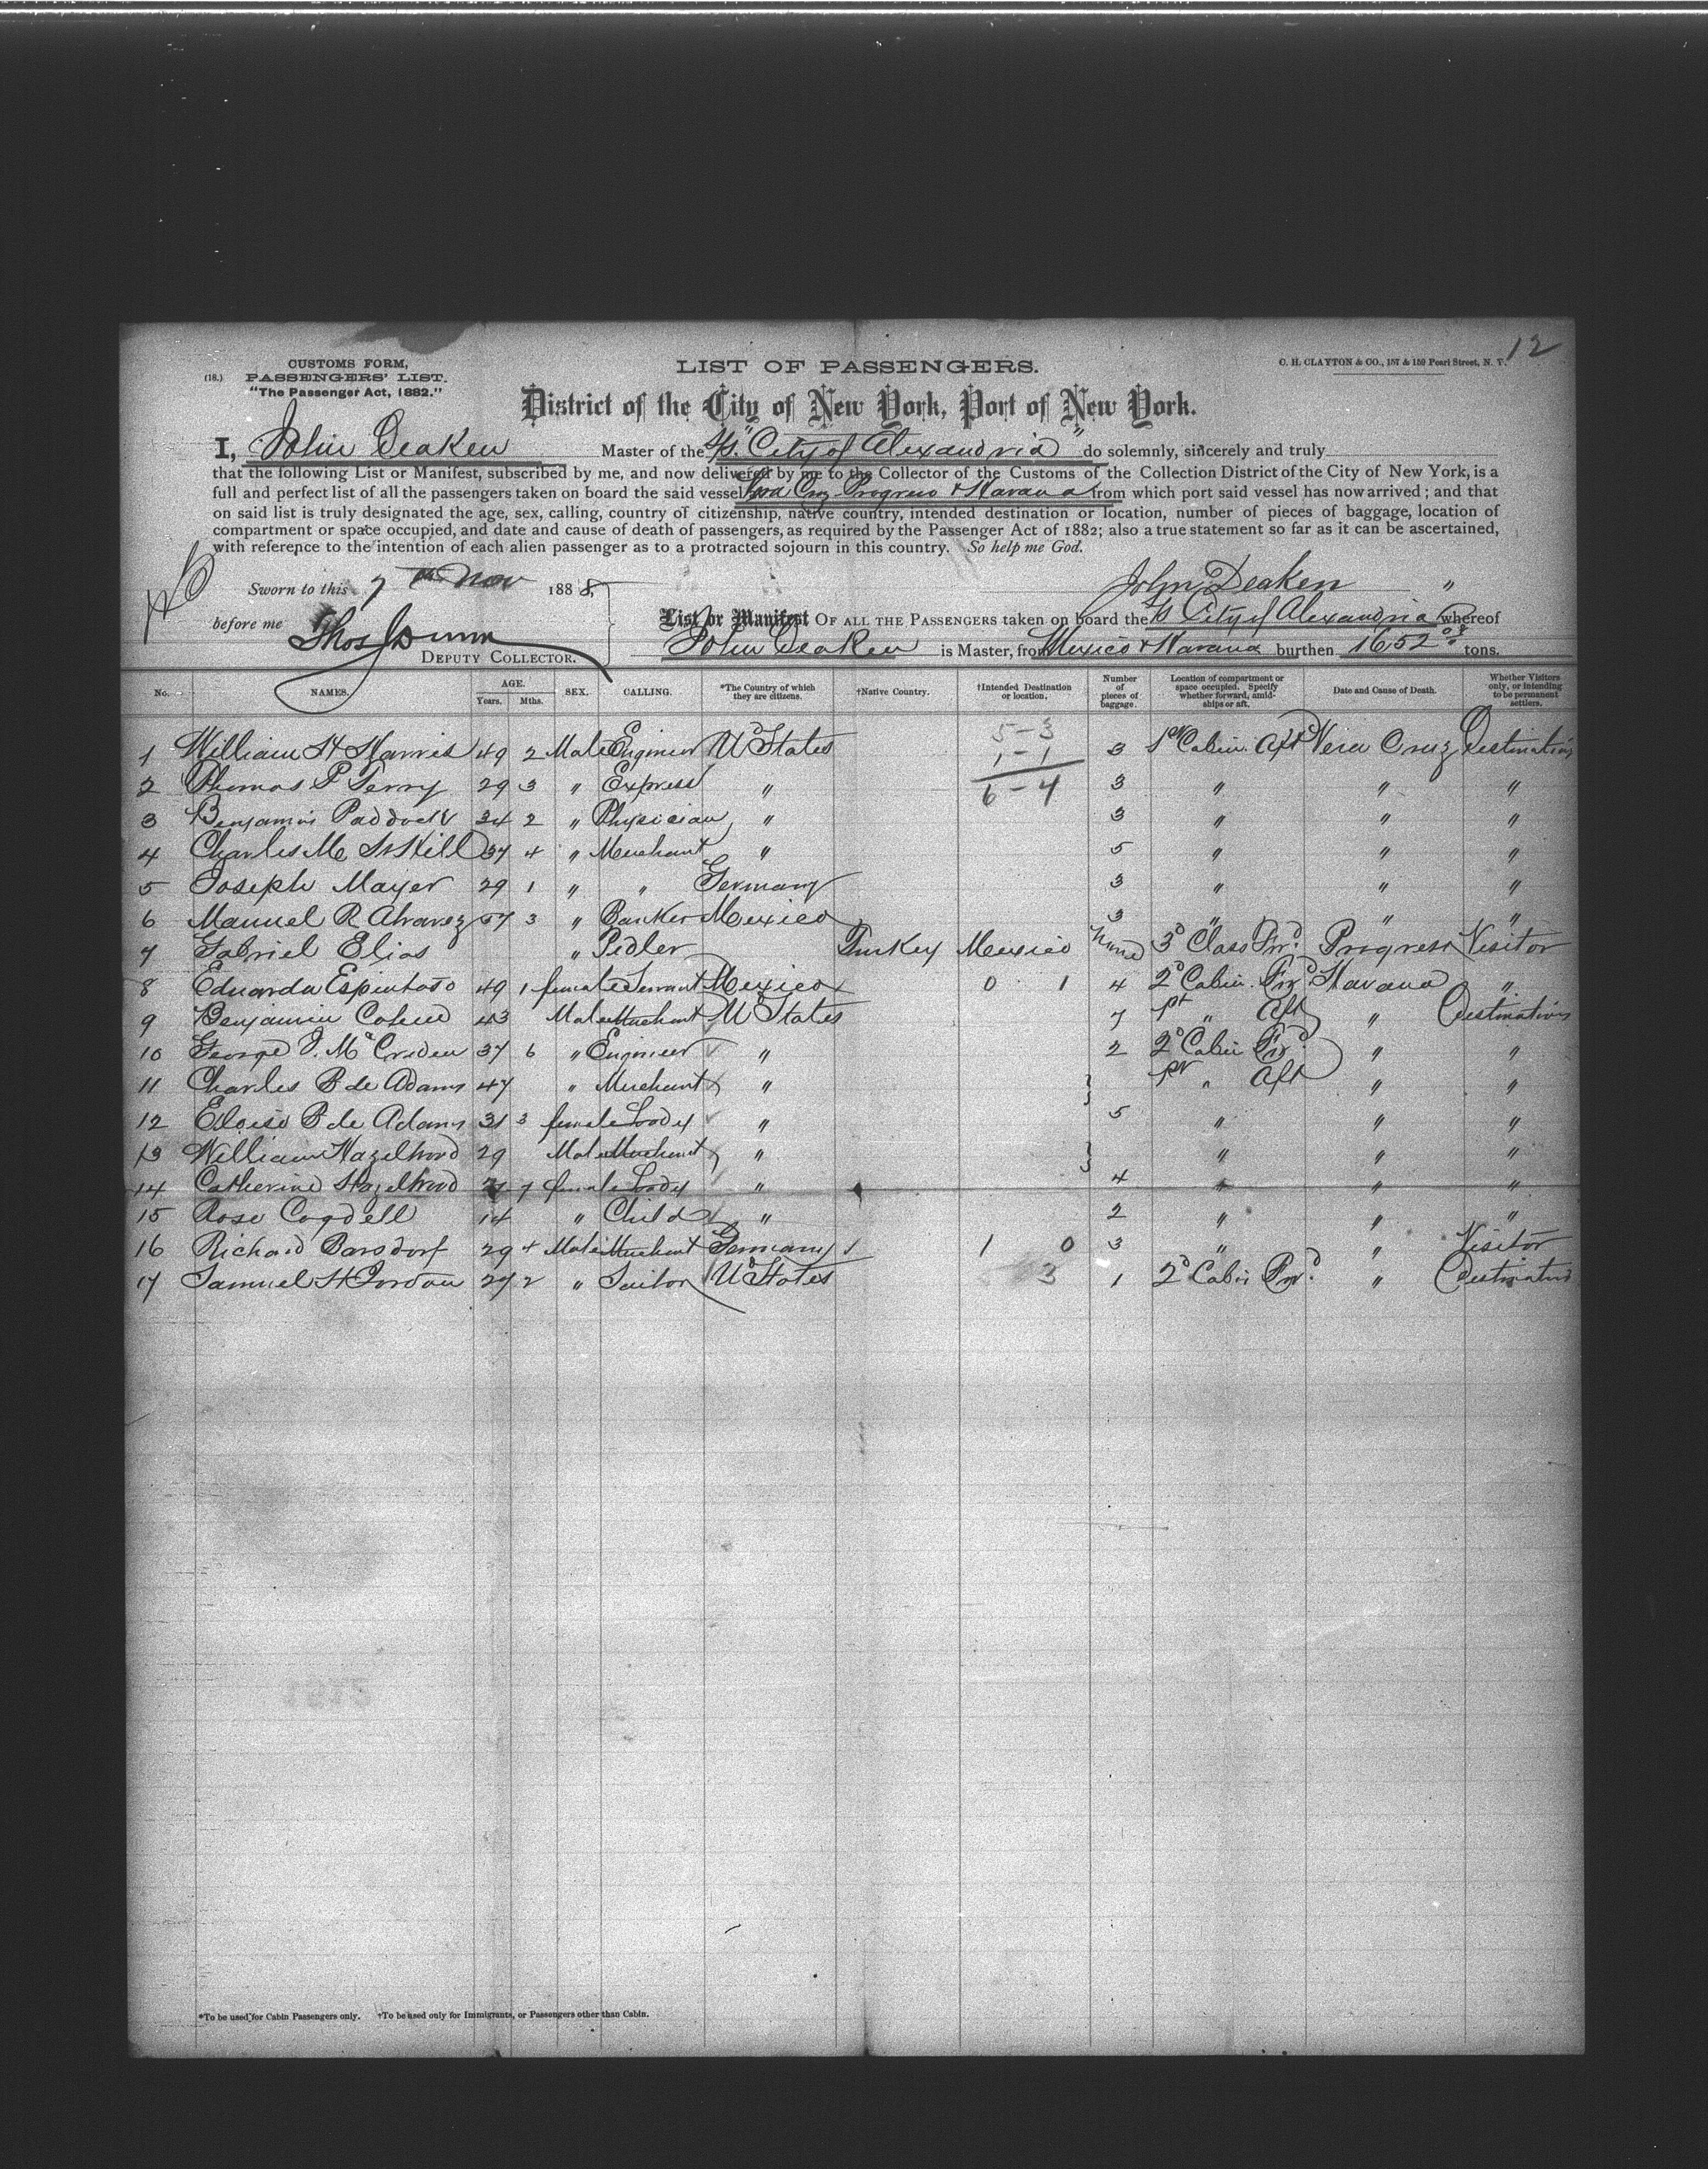 12
CUSTOMS FORM,
(18.) PASSENGERS' LIST.
"The Passenger Act, 1882."
LIST OF PASSENGERS.
C. H. CLAYTON & CO., 157 & 159 Pearl Street, N. Y.
District of the City of New York, Port of New York.
I, John Deaken Master of the S/S. "City of Alexandria" do solemnly, sincerely and truly
that the following List or Manifest, subscribed by me, and now delivered by me to the Collector of the Customs of the Collection District of the City of New York, is a
full and perfect list of all the passengers taken on board the said vessel Vera Cruz Progreso & Havana from which port said vessel has now arrived; and that
on said list is truly designated the age, sex, calling, country of citizenship, native country, intended destination or location, number of pieces of baggage, location of
compartment or space occupied, and date and cause of death of passengers, as required by the Passenger Act of 1882; also a true statement so far as it can be ascertained,
with reference to the intention of each alien passenger as to a protracted sojourn in this country. So help me God.
Sworn to this 7th Nov 1888,
John Deaken
before me Thos J Dunn
DEPUTY COLLECTOR.
List or Manifest OF ALL THE PASSENGERS taken on board the SS City of Alexandria whereof
John Deaken is Master, from Mexico & Havana burthen 1652 tons.
No. NAMES. AGE. Years. Mths. SEX. CALLING. *The Country of which they are citizens. †Native Country. †Intended Destination or location. Number of pieces of baggage. Location of compartment or space occupied. Specify whether forward, amidships or aft. Date and Cause of Death. Whether Visitors only, or intending to be permanent settlers.
5-3
1-1
6-4
1 William H Harris 49 2 Male Engineer U States 3 1st Cabin Aft Vera Cruz Destination
2 Thomas P Terry 29 3 " Express " 3 " " "
3 Benjamin Paddock 34 2 " Physician " 3 " " "
4 Charles Mc St Hill 37 4 " Merchant " 5 " " "
5 Joseph Mayer 29 1 " " Germany 3 " " "
6 Manuel R Alvarez 57 3 " Banker Mexico 3 " " "
7 Gabriel Elias " Pedler Turkey Mexico None 3d Class Fwd. Progreso Visitor
8 Eduarda Espintoso 49 1 female Servant Mexico 0 1 4 2d Cabin Fwd Havana "
9 Benjamin Cohen 43 Male Merchant U States 7 1st " Aft " Destination
10 George J. McCruden 37 6 " Engineer " 2 2d Cabin Fwd. " "
11 Charles B de Adams 47 " Merchant " 1st " Aft " "
12 Eloise B de Adams 31 3 female Lady " 5 " " "
13 William Hazelwood 29 Male Merchant " " " "
14 Catherine Hazelwood 7 female Lady " 4 " " "
15 Rose Cogdell 14 " Child " 2 " " "
16 Richard Barsdorf 29 4 Male Merchant Germany 1 0 3 " " Visitor
17 Samuel H Jordan 27 2 " Sailor U States 3 1 2d Cabin Fwd. " Destination
*To be used for Cabin Passengers only. †To be used only for Immigrants, or Passengers other than Cabin.